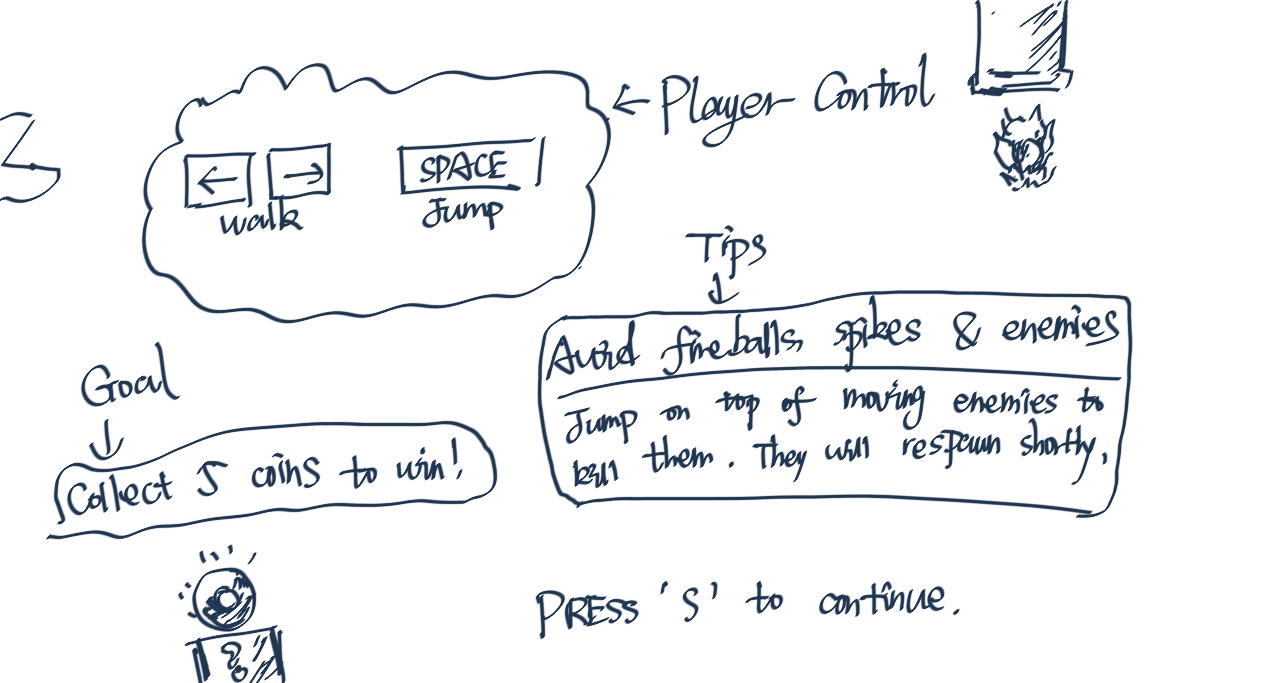 3
← Player Control
← → SPACE
walk Jump
Tips
Avoid fireballs, spikes & enemies
Jump on top of moving enemies to
kill them. They will respawn shortly.
Goal
Collect 5 coins to win!
?
PRESS 'S' to continue.